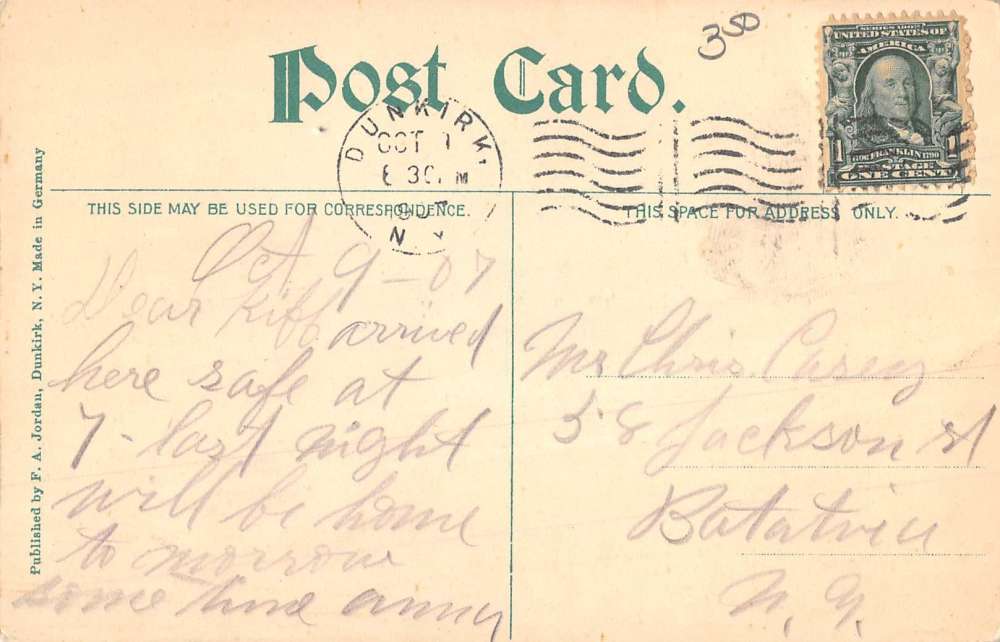 350
Post Card.
SERIES 1902
UNITED STATES OF
AMERICA
1 FRANKLIN 1790 1
POSTAGE
ONE CENT
DUNKIRK,
OCT
8 30 M
N.Y.
THIS SIDE MAY BE USED FOR CORRESPONDENCE.
Oct 9-07
Dear
arrived
here safe at
7- last night
will be home
to morrow
some time
THIS SPACE FOR ADDRESS ONLY.
Mr Chris Casey
58 Jackson st
N.Y.
Published by F. A. Jordan, Dunkirk, N. Y. Made in Germany